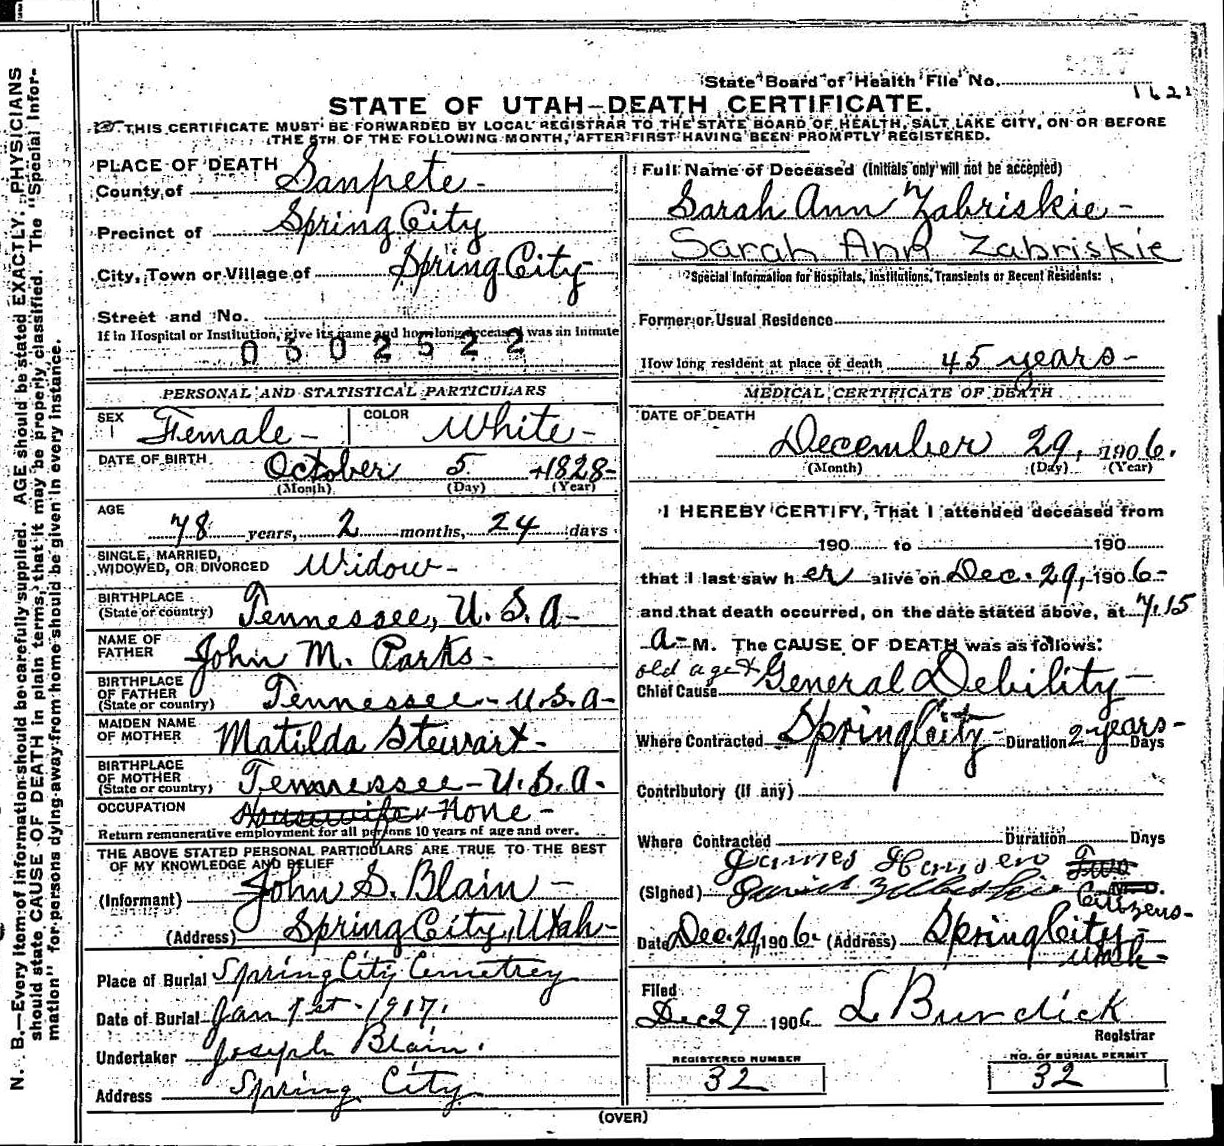 N. B.—Every item of information should be carefully supplied. AGE should be stated EXACTLY. PHYSICIANS
should state CAUSE OF DEATH in plain terms, that it may be properly classified. The "Special Infor-
mation" for persons dying away from home should be given in every instance.
State Board of Health File No.
STATE OF UTAH—DEATH CERTIFICATE.
THIS CERTIFICATE MUST BE FORWARDED BY LOCAL REGISTRAR TO THE STATE BOARD OF HEALTH, SALT LAKE CITY, ON OR BEFORE
THE 5TH OF THE FOLLOWING MONTH, AFTER FIRST HAVING BEEN PROMPTLY REGISTERED.
PLACE OF DEATH
County of Sanpete-
Precinct of Spring City
City, Town or Village of Spring City
Street and No.
If in Hospital or Institution, give its name and how long deceased was an inmate
0602522
PERSONAL AND STATISTICAL PARTICULARS
SEX Female- COLOR White-
DATE OF BIRTH October 5 1828-
(Month) (Day) (Year)
AGE
78 years, 2 months, 24 days
SINGLE, MARRIED,
WIDOWED, OR DIVORCED Widow-
BIRTHPLACE
(State or country) Tennessee, U.S.A-
NAME OF
FATHER John M. Parks-
BIRTHPLACE
OF FATHER
(State or country) Tennessee-U.S.A-
MAIDEN NAME
OF MOTHER Matilda Stewart-
BIRTHPLACE
OF MOTHER
(State or country) Tennessee-U.S.A.
OCCUPATION Housewife None-
Return remunerative employment for all persons 10 years of age and over.
THE ABOVE STATED PERSONAL PARTICULARS ARE TRUE TO THE BEST
OF MY KNOWLEDGE AND BELIEF
(Informant) John S. Blain-
(Address) Spring City, Utah-
Place of Burial Spring City Cemetrey
Date of Burial Jan 1st-1917.
Undertaker Joseph Blain.
Address Spring City
Full Name of Deceased (Initials only will not be accepted)
Sarah Ann Zabriskie-
Sarah Ann Zabriskie
Special Information for Hospitals, Institutions, Transients or Recent Residents:
Former or Usual Residence
How long resident at place of death 45 years-
MEDICAL CERTIFICATE OF DEATH
DATE OF DEATH
December 29, 1906.
(Month) (Day) (Year)
I HEREBY CERTIFY, That I attended deceased from
190 to 190
that I last saw her alive on Dec. 29, 1906-
and that death occurred, on the date stated above, at 7.15
a-M. The CAUSE OF DEATH was as follows:
old age &
Chief Cause General Debility-
Where Contracted Spring City- Duration 2-years- Days
Contributory (If any)
Where Contracted Duration Days
James Hansen Two
(Signed) David Zabriskie M. D.
Citizens-
Date Dec. 29, 1906. (Address) Spring City-
Utah-
Filed
Dec 29 1906 L Burdick
Registrar
REGISTERED NUMBER
32
NO. OF BURIAL PERMIT
32
(OVER)